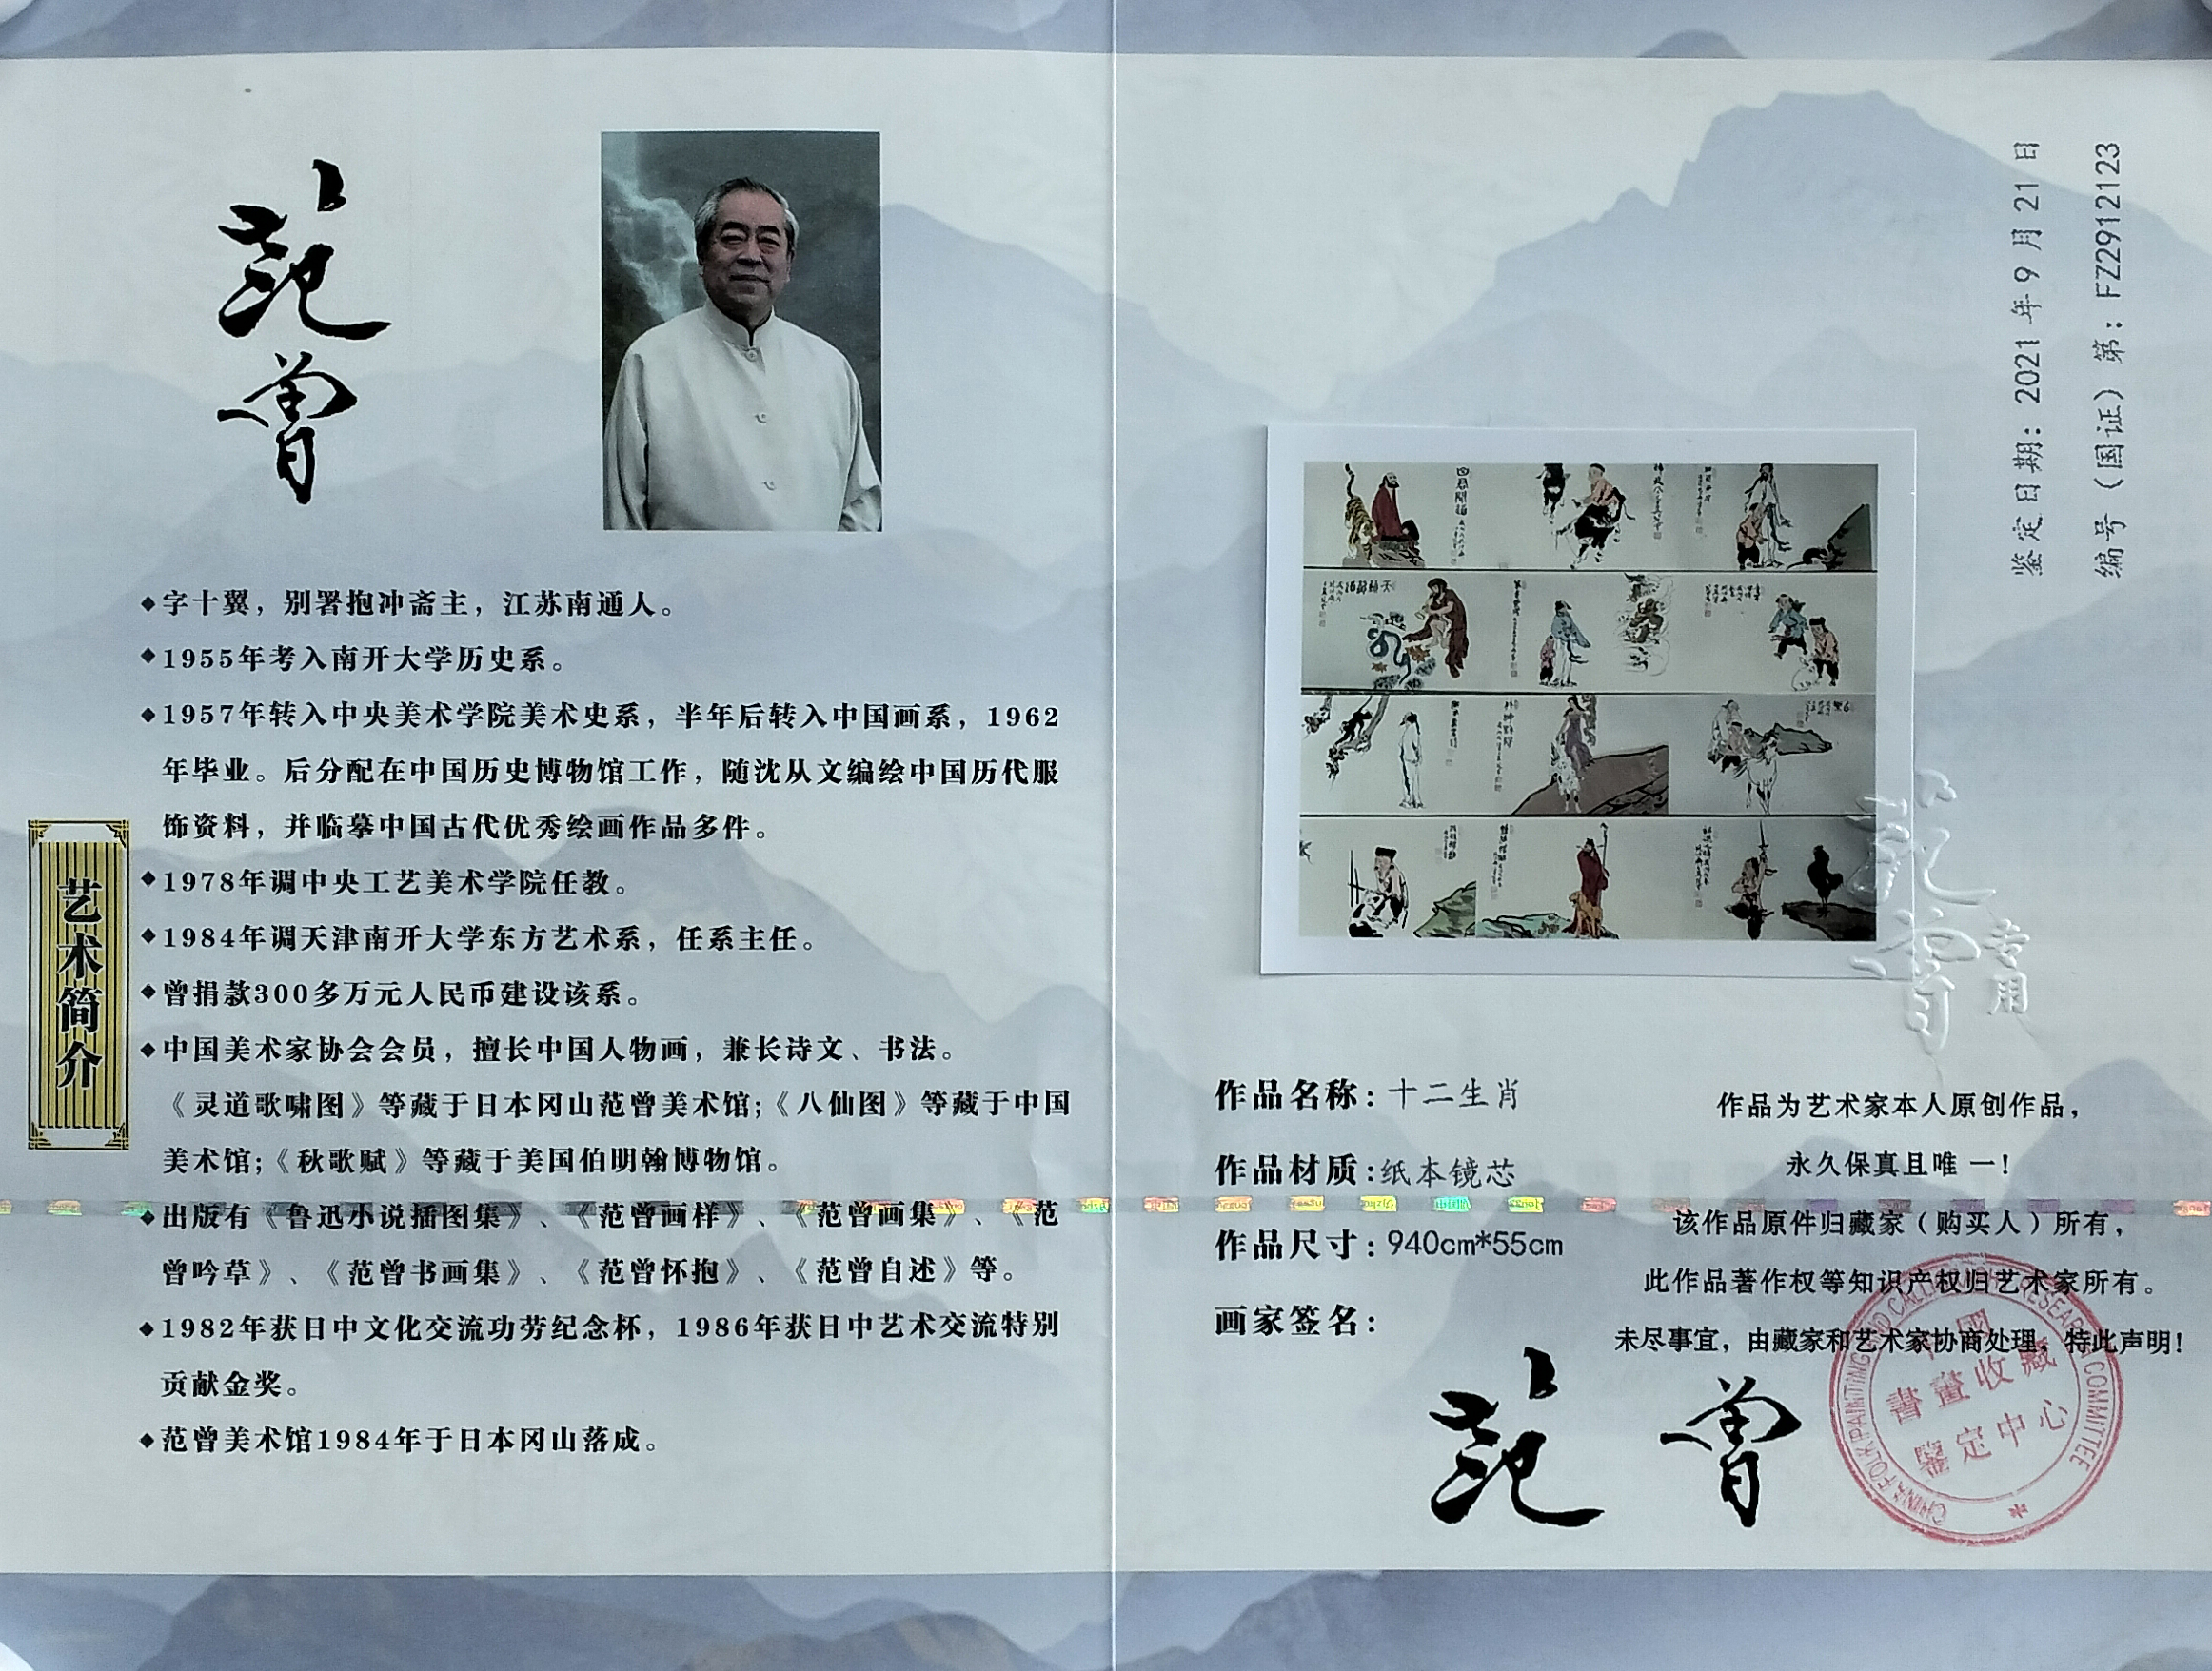 范曾
◆字十翼，别署抱冲斋主，江苏南通人。
◆1955年考入南开大学历史系。
◆1957年转入中央美术学院美术史系，半年后转入中国画系，1962
年毕业。后分配在中国历史博物馆工作，随沈从文编绘中国历代服
饰资料，并临摹中国古代优秀绘画作品多件。
◆1978年调中央工艺美术学院任教。
◆1984年调天津南开大学东方艺术系，任系主任。
◆曾捐款300多万元人民币建设该系。
◆中国美术家协会会员，擅长中国人物画，兼长诗文、书法。
《灵道歌啸图》等藏于日本冈山范曾美术馆;《八仙图》等藏于中国
美术馆;《秋歌赋》等藏于美国伯明翰博物馆。
◆出版有《鲁迅小说插图集》、《范曾画样》、《范曾画集》、《范
曾吟草》、《范曾书画集》、《范曾怀抱》、《范曾自述》等。
◆1982年获日中文化交流功劳纪念杯，1986年获日中艺术交流特别
贡献金奖。
◆范曾美术馆1984年于日本冈山落成。
艺术简介
鉴定日期：2021年9月21日
编号（国证）第：FZ29121123
范曾
专用
作品名称：十二生肖
作品材质:纸本镜芯
作品尺寸：940cm*55cm
画家签名：
范曾
作品为艺术家本人原创作品，
永久保真且唯一！
该作品原件归藏家（购买人）所有，
此作品著作权等知识产权归艺术家所有。
未尽事宜，由藏家和艺术家协商处理，特此声明！
CHINA FOLK PAINTING AND CALLIGRAPHY RESEARCH COMMITTEE
中國
書畫收藏
鑒定中心